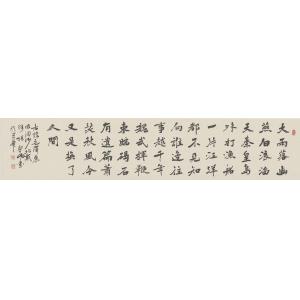 大雨落幽
燕白浪滔
天秦皇島
外打漁船
一片汪洋
都不見知
向誰邊往
事越千年
魏武揮鞭
東臨碣石
有遺篇蕭
瑟秋風今
又是換了
人間